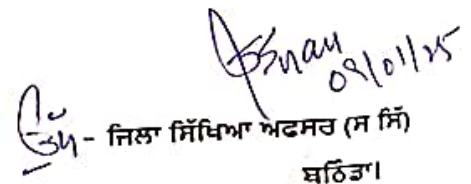 09/01/25
ਉੱਪ - ਜਿਲਾ ਸਿੱਖਿਆ ਅਫਸਰ (ਸ ਸਿੱ)
ਬਠਿੰਡਾ।